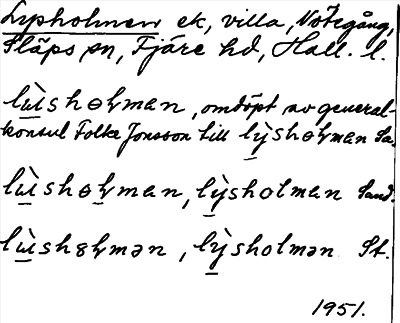 Lysholmen ek, villa, Nötegång,
Släps sn, Fjäre hd, Hall. l.
lɯ̀shɵɬman, omdöpt av general-
konsul Folke Jonsson till lỳshoɬman Sa.
lɯ̀shɵɬman, lỳsholman Sand.
lɯ̀shɞɬmən, lỳsholmən St.
1951.